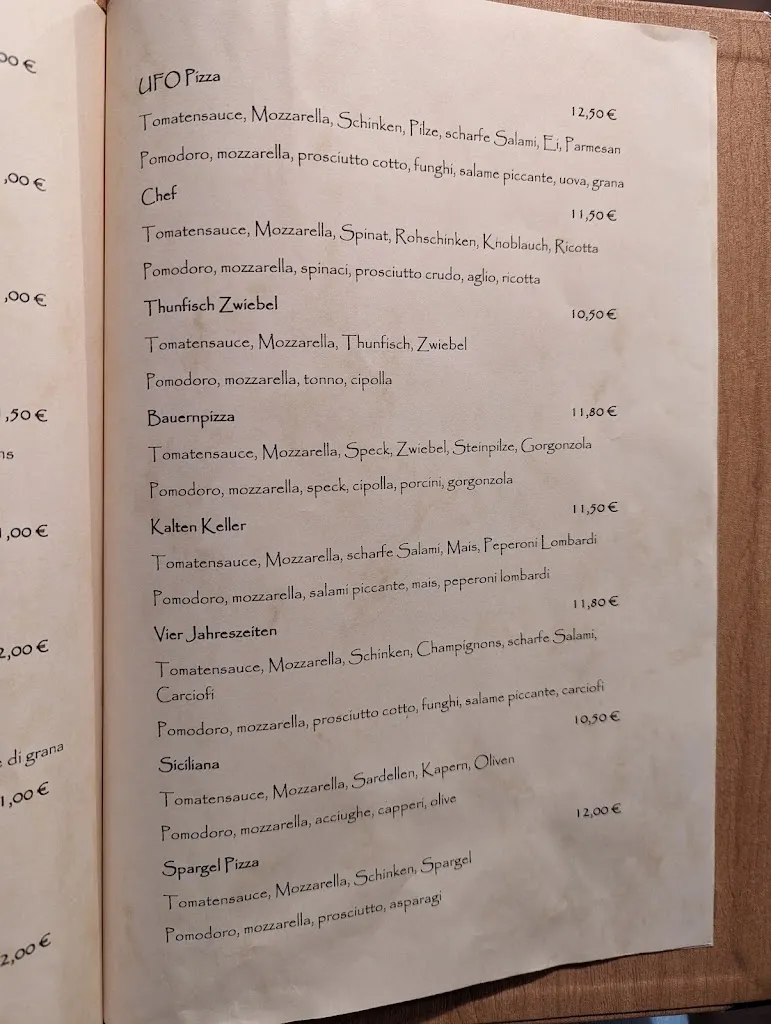 00 €
,00 €
,00 €
,50 €
ns
1,00 €
2,00 €
di grana
1,00 €
2,00 €
UFO Pizza
12,50 €
Tomatensauce, Mozzarella, Schinken, Pilze, scharfe Salami, Ei, Parmesan
Pomodoro, mozzarella, prosciutto cotto, funghi, salame piccante, uova, grana
Chef
11,50 €
Tomatensauce, Mozzarella, Spinat, Rohschinken, Knoblauch, Ricotta
Pomodoro, mozzarella, spinaci, prosciutto crudo, aglio, ricotta
Thunfisch Zwiebel
10,50 €
Tomatensauce, Mozzarella, Thunfisch, Zwiebel
Pomodoro, mozzarella, tonno, cipolla
Bauernpizza
11,80 €
Tomatensauce, Mozzarella, Speck, Zwiebel, Steinpilze, Gorgonzola
Pomodoro, mozzarella, speck, cipolla, porcini, gorgonzola
11,50 €
Kalten Keller
Tomatensauce, Mozzarella, scharfe Salami, Mais, Peperoni Lombardi
Pomodoro, mozzarella, salami piccante, mais, peperoni lombardi
11,80 €
Vier Jahreszeiten
Tomatensauce, Mozzarella, Schinken, Champignons, scharfe Salami,
Carciofi
Pomodoro, mozzarella, prosciutto cotto, funghi, salame piccante, carciofi
10,50 €
Siciliana
Tomatensauce, Mozzarella, Sardellen, Kapern, Oliven
Pomodoro, mozzarella, acciughe, capperi, olive
12,00 €
Spargel Pizza
Tomatensauce, Mozzarella, Schinken, Spargel
Pomodoro, mozzarella, prosciutto, asparagi